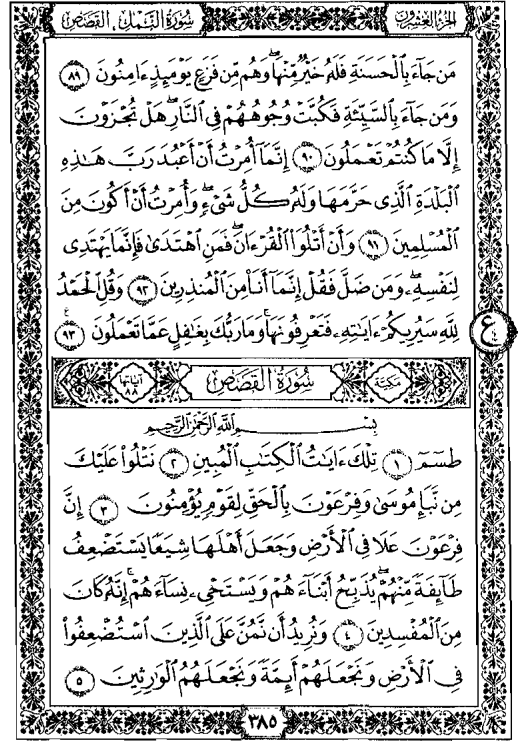 الجزء العشرون
سورة النمل ، القصص
مَن جَآءَ بِٱلْحَسَنَةِ فَلَهُۥ خَيْرٌ مِّنْهَا وَهُم مِّن فَزَعٍ يَوْمَئِذٍ ءَامِنُونَ ٨٩
وَمَن جَآءَ بِٱلسَّيِّئَةِ فَكُبَّتْ وُجُوهُهُمْ فِى ٱلنَّارِ هَلْ تُجْزَوْنَ
إِلَّا مَا كُنتُمْ تَعْمَلُونَ ٩٠ إِنَّمَآ أُمِرْتُ أَنْ أَعْبُدَ رَبَّ هَٰذِهِ
ٱلْبَلْدَةِ ٱلَّذِى حَرَّمَهَا وَلَهُۥ كُلُّ شَىْءٍ وَأُمِرْتُ أَنْ أَكُونَ مِنَ
ٱلْمُسْلِمِينَ ٩١ وَأَنْ أَتْلُوَا۟ ٱلْقُرْءَانَ فَمَنِ ٱهْتَدَىٰ فَإِنَّمَا يَهْتَدِى
لِنَفْسِهِۦ وَمَن ضَلَّ فَقُلْ إِنَّمَآ أَنَا۠ مِنَ ٱلْمُنذِرِينَ ٩٢ وَقُلِ ٱلْحَمْدُ
لِلَّهِ سَيُرِيكُمْ ءَايَٰتِهِۦ فَتَعْرِفُونَهَا وَمَا رَبُّكَ بِغَٰفِلٍ عَمَّا تَعْمَلُونَ ٩٣
ع
سورة القصص
مكية
آياتها ٨٨
بِسْمِ ٱللَّهِ ٱلرَّحْمَٰنِ ٱلرَّحِيمِ
طسٓمٓ ١ تِلْكَ ءَايَٰتُ ٱلْكِتَٰبِ ٱلْمُبِينِ ٢ نَتْلُوا۟ عَلَيْكَ
مِن نَّبَإِ مُوسَىٰ وَفِرْعَوْنَ بِٱلْحَقِّ لِقَوْمٍ يُؤْمِنُونَ ٣ إِنَّ
فِرْعَوْنَ عَلَا فِى ٱلْأَرْضِ وَجَعَلَ أَهْلَهَا شِيَعًا يَسْتَضْعِفُ
طَآئِفَةً مِّنْهُمْ يُذَبِّحُ أَبْنَآءَهُمْ وَيَسْتَحْىِۦ نِسَآءَهُمْ إِنَّهُۥ كَانَ
مِنَ ٱلْمُفْسِدِينَ ٤ وَنُرِيدُ أَن نَّمُنَّ عَلَى ٱلَّذِينَ ٱسْتُضْعِفُوا۟
فِى ٱلْأَرْضِ وَنَجْعَلَهُمْ أَئِمَّةً وَنَجْعَلَهُمُ ٱلْوَٰرِثِينَ ٥
٣٨٥